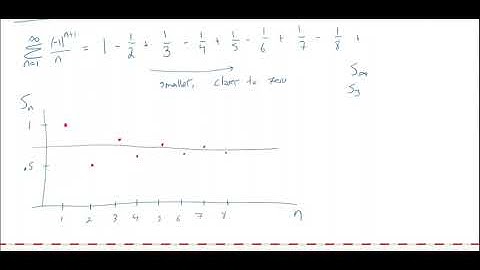 ∞
∑ (-1)^{n+1}/n = 1 - 1/2 + 1/3 - 1/4 + 1/5 - 1/6 + 1/7 - 1/8 +
n=1
smaller, closer to zero
S∞
S3
Sn
1
.5
1 2 3 4 5 6 7 8 n